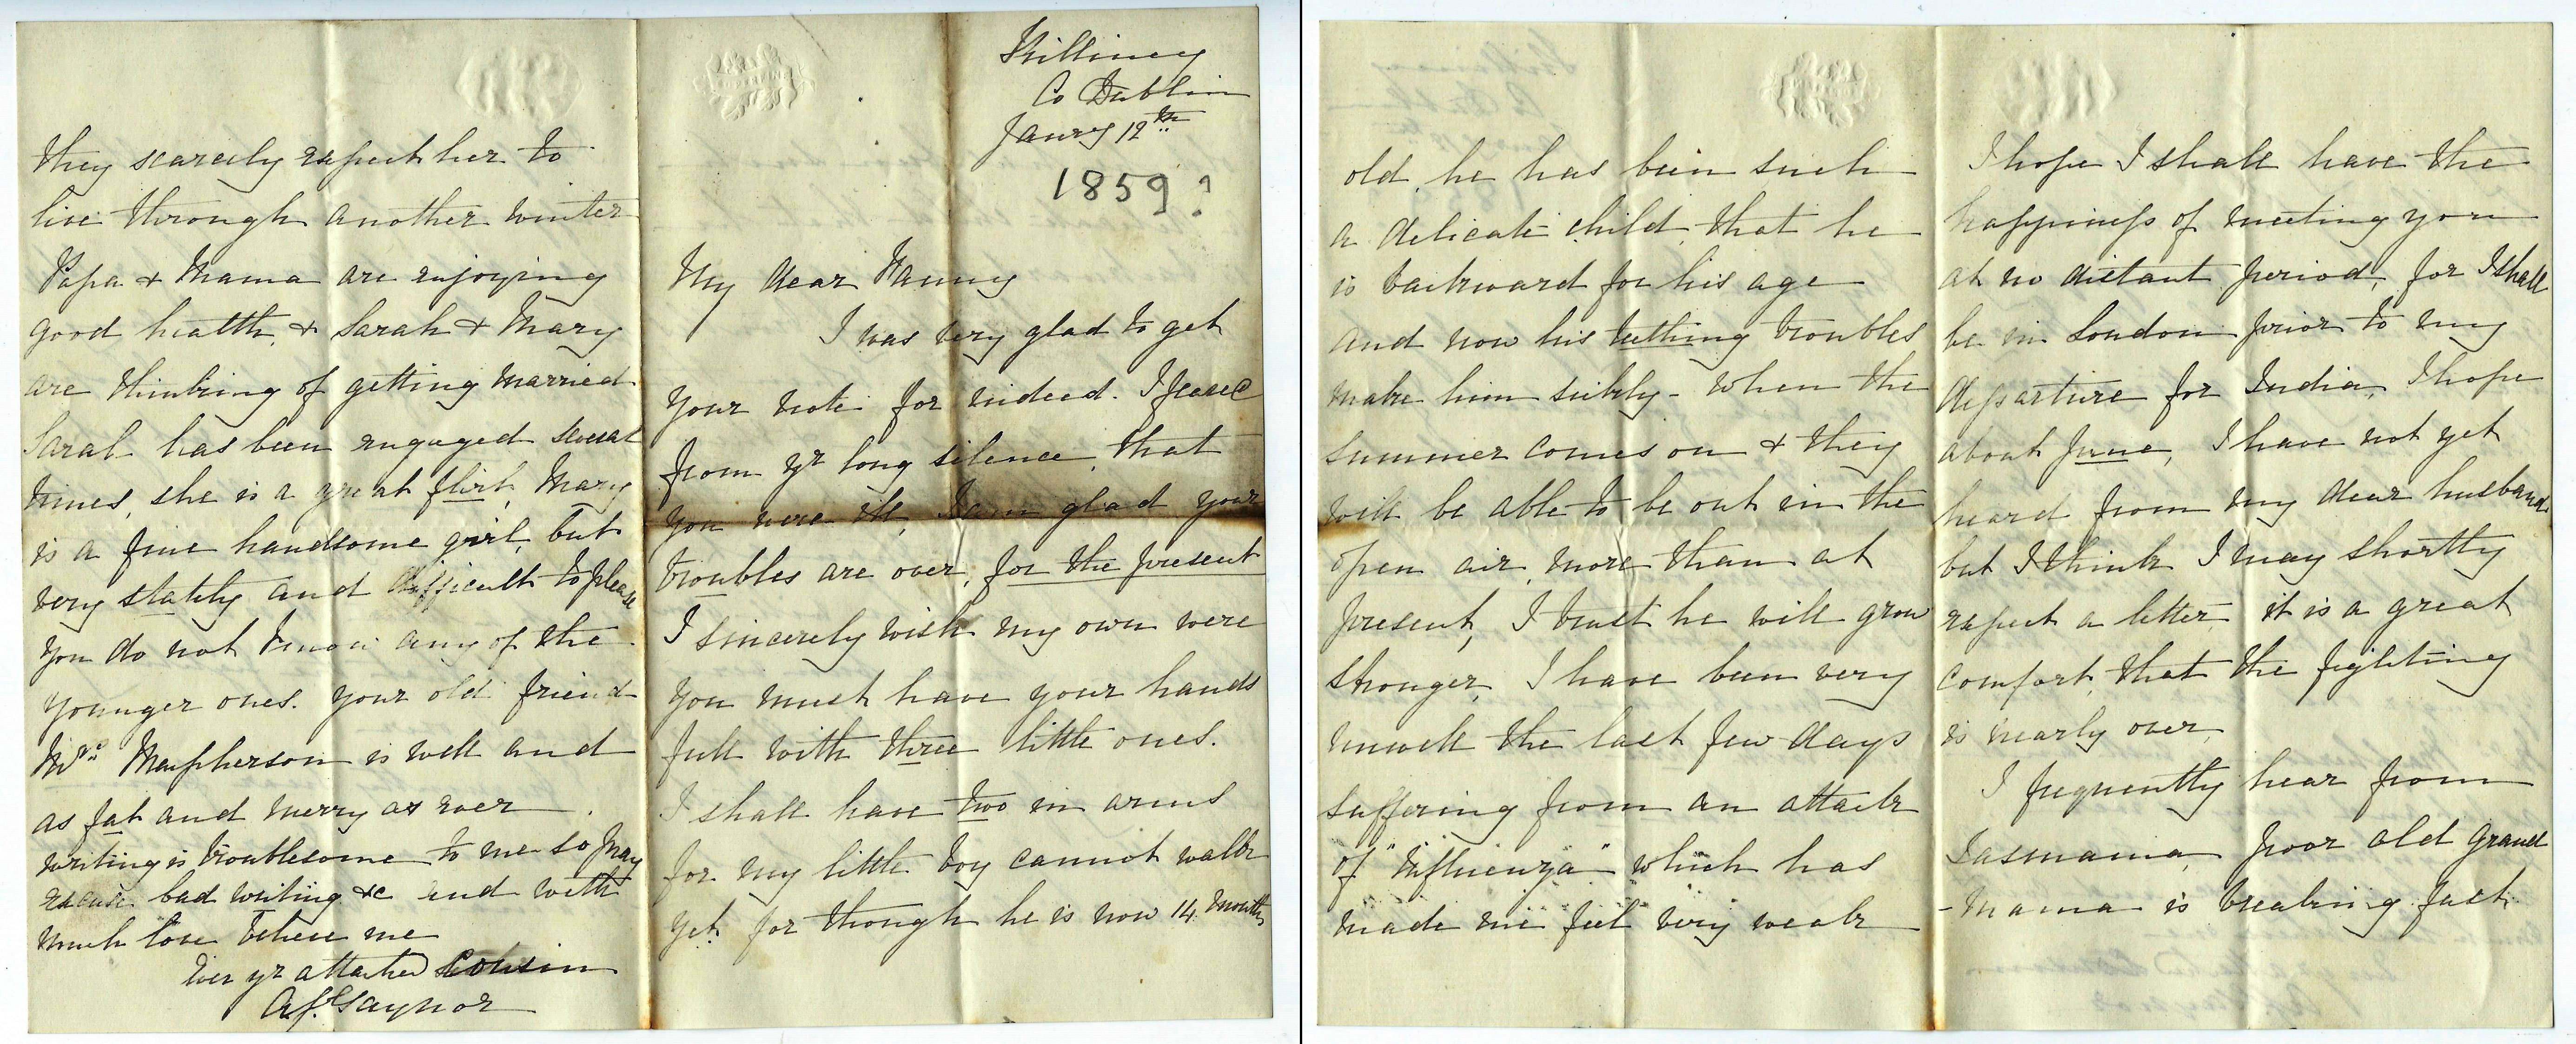 Killiney
Co Dublin
Janry 12th
1859?
My dear Fanny
I was very glad to get
your note for indeed. I feared
from yr long silence, that
you were ill, I am glad your
troubles are over, for the present
I sincerely wish my own were
you must have your hands
full with three little ones.
I shall have two in arms
for my little boy cannot walk
yet for though he is now 14 months
old, he has been such
a delicate child, that he
is backward for his age
and now his teething troubles
make him sickly - when the
summer comes on & they
will be able to be out in the
open air, more than at
present, I trust he will grow
stronger, I have been very
unwell the last few days
suffering from an attack
of "Influenza" which has
made me feel very weak
I hope I shall have the
happiness of meeting you
at no distant period, for I shall
be in London prior to my
departure for India, I hope
about June, I have not yet
heard from my dear husband
but I think I may shortly
expect a letter, it is a great
comfort, that the fighting
is nearly over,
I frequently hear from
Tasmania, poor old Grand
-Mama is breaking fast.
they scarcely expect her to
live through another winter
Papa & Mama are enjoying
good health, & Sarah & Mary
are thinking of getting married
Sarah has been engaged several
times, she is a great flirt, Mary
is a fine handsome girl, but
very stately and difficult to please
you do not know any of the
younger ones. your old friend
Mrs Macpherson is well and
as fat and merry as ever
writing is troublesome to me so pray
excuse bad writing &c and with
much love believe me
Ever yr attached Cousin
A.J. Gaynor